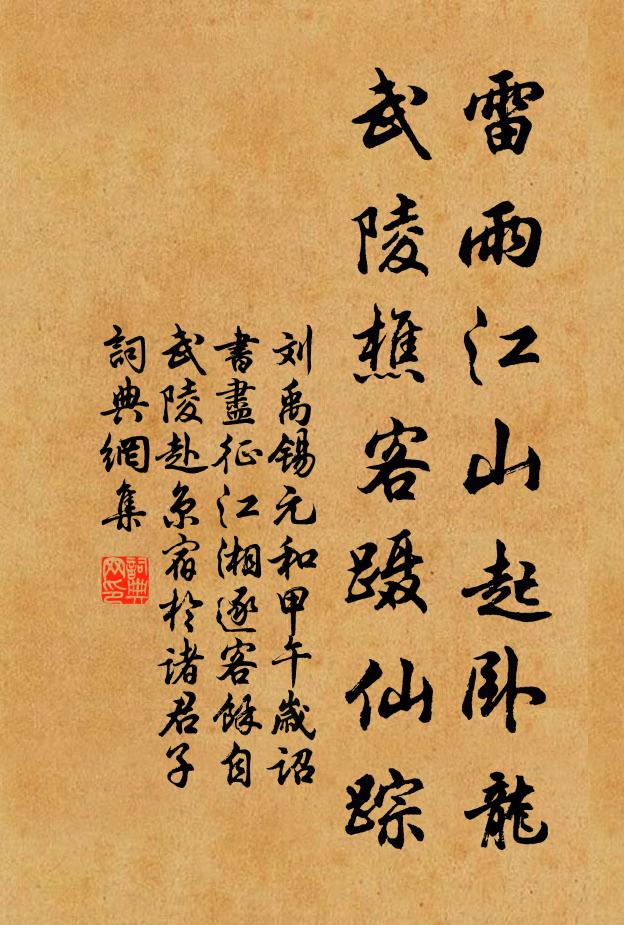 雷雨江山起卧龍
武陵樵客蹑仙踪
刘禹锡元和甲午歲诏
書盡征江湘逐客餘自
武陵赴京宿於诸君子
詞典網集
詞典网印